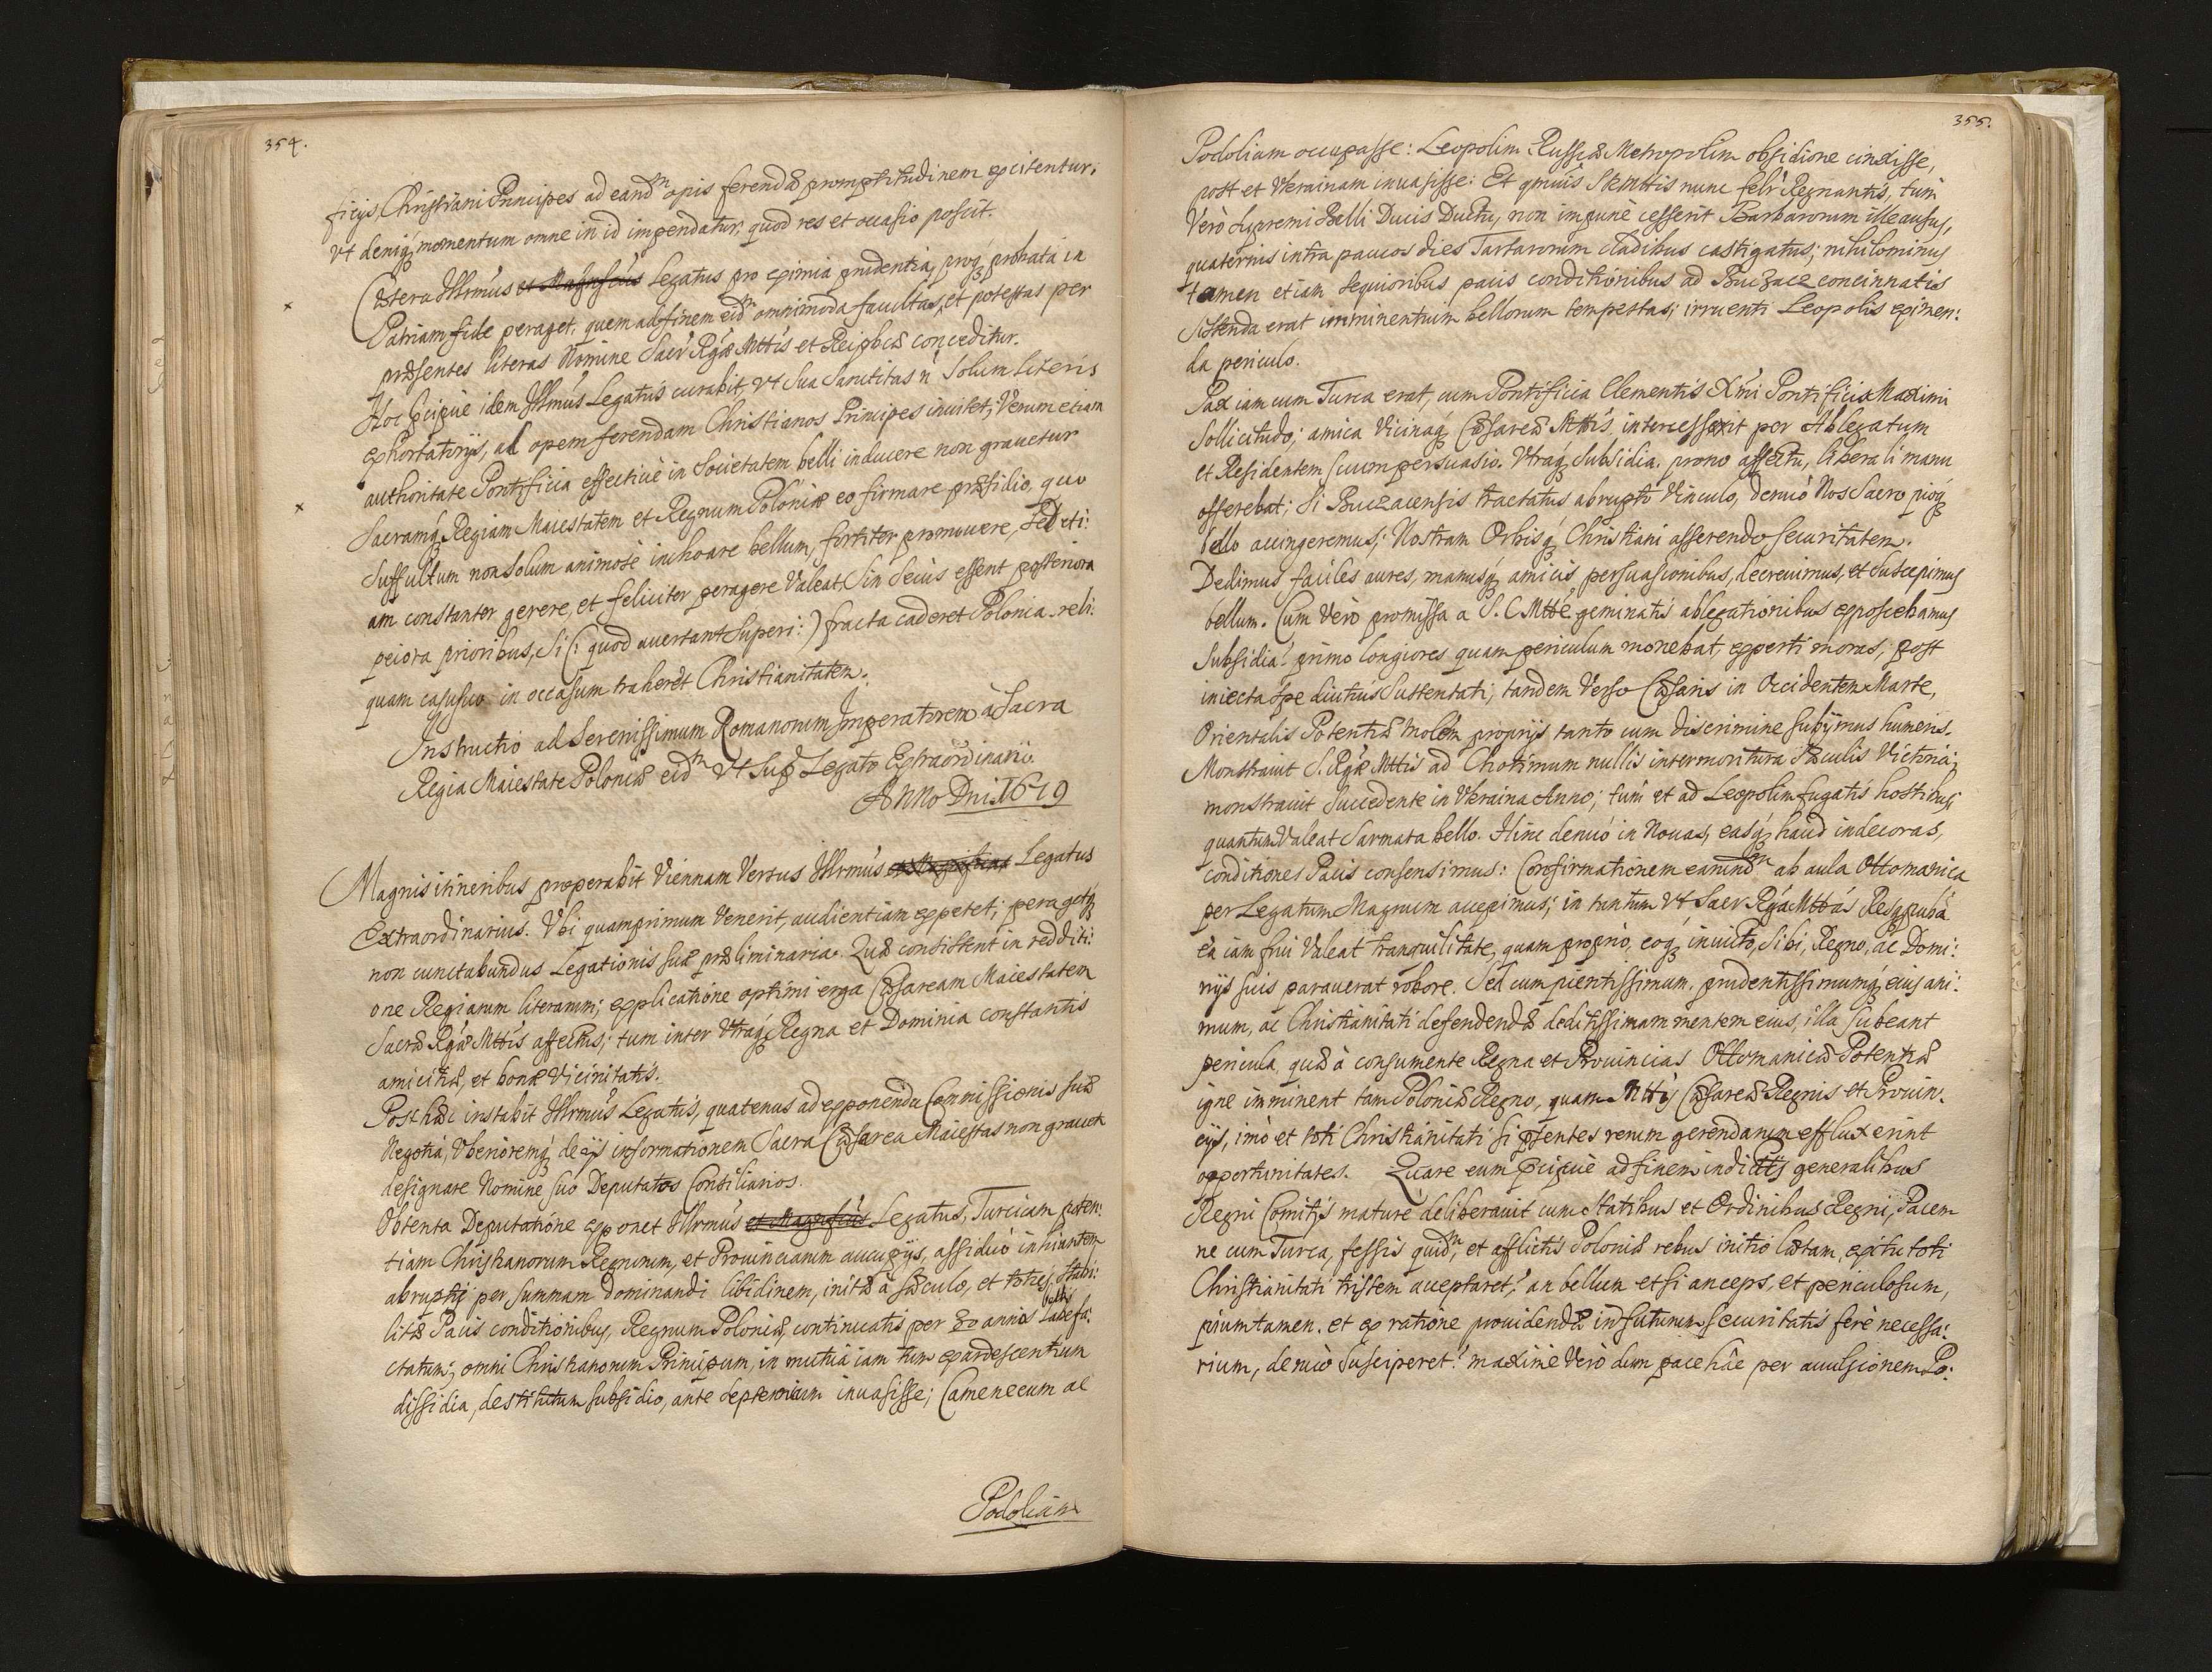 354.
ficijs, Christiani Principes ad eandm opis ferendæ promptitudinem excitentur.
Vt deniq; momentum omne in id impendatur, quod res et occasio poscit.
Cætera Illrmus et Magnificus Legatus pro eximia prudentia, proq; probata in
Patriam fide peraget. quem ad finem eidm omnimoda facultas, et potestas per
præsentes literas Nomine Sacr Rgæ Mttis et Reipbcæ conceditur.
Hoc pcipue idem Illrmus Legatus curabit, vt Sua Sanctitas n solum literis
exhortatorijs, ad opem ferendam Christianos Principes invitet, Verum etiam
authoritate Pontificia effective in Societatem belli inducere non grauetur
Sacramq; Regiam Maiestatem et Regnum Poloniæ eo firmare præsidio, quo
Suffultum non Solum animose inchoare bellum, fortiter promouere, sed eti:
am constanter gerere, et feliciter peragere Valeat. Sin Secus essent posteriora
peiora prioribus, Si (: quod auertant Superi :) fracta caderet Polonia, reli:
quam casu suo in occasum traheret Christianitatem.
Instructio ad Serenissimum Romanorum Imperatorem à Sacra
Regia Maiestate Poloniæ eidm Vt Sup Legato Extraordinario.
Anno Dni 1679
Magnis itineribus properabit Viennam Versus Illrmus et Magnificus Legatus
Extraordinarius. Vbi quamprimum Venerit, audientiam expetet; peragetq;
non cunctabundus Legationis suæ præliminaria. Quæ consistent in redditi:
one Regiarum literarum; explicatione optimi erga Cæsaream Maiestatem
Sacræ Rgæ Mttis affectus; tum inter Vtraq; Regna et Dominia constantis
amicitiæ, et bonæ Vicinitatis.
Post hæc instabit Illrmus Legatus, quatenus ad exponenda Commissionis suæ
Negotia, Vberioremq; de ijs informationem Sacra Cæsarea Maiestas non grauet
designare Nomine suo Deputatos Consiliarios.
Obtenta Deputatione exponet Illrmus et Magnificus Legatus, Turcicam poten:
tiam Christianorum Regnorum, et Prouinciarum aucupijs, assiduo inhiantem
abruptis per summam dominandi libidinem, initæ à sæculo, et toties stabi:
litæ Pacis conditionibus, Regnum Poloniæ, continuatis per 30 annos bellis labefa:
ctatum; omni Christianorum Principum, in mutua iam tum exardescentium
dissidia, destitutum subsidio, ante septenium inuasisse; Camenecum ac
Podoliam
355.
Podoliam occupasse: Leopolim Russiæ Metropolim obsidione cinxisse,
post et Vkrainam inuasisse: Et quuis S R Mttis nunc felr Regnantis, tum
Verò Supremi Belli Ducis Ductu, non impunè cesserit Barbarorum ille ausus,
quaternis intra paucos dies Tartarorum cladibus castigatus; nihilominus
tamen etiam sequioribus pacis conditionibus ad Buczacz concinnatis
Sistenda erat imminentium bellorum tempestas; irruenti Leopolis eximen:
da periculo.
Pax iam cum Turca erat, cum Pontificia Clementis Xmi Pontificis Maximi
Sollicitudo; amica Vicinaq; Cæsareæ Mttis, intercesserit per Ablegatum
et Residentem suum persuasio. Vtraq; Subsidia, prono affectu, liberali manu
offerebat; Si Buczacensis tractatus abrupto Vinculo, denuò Nos Sacro pioq;
bello accingeremus; Nostram Orbisq; Christiani asserendo securitatem.
Dedimus faciles aures, manusq; amicis persuasionibus, decreuimus, et Suscepimus
bellum. Cum Verò promissa a S. C Mtte geminatis ablegationibus exposcebamus
Subsidia? primo longiores quam periculum monebat, experti moras; post
iniecta spe diutius Sustentati; tandem Verso Cæsaris in Occidentem Marte,
Orientalis Potentiæ molem proprijs tanto cum discrimine subijmus humeris.
Monstrauit S. Rgæ Mttis ad Chotimum nullis intermoritura Sæculis Victoria;
monstrauit Succedente in Vkraina Anno; tum et ad Leopolim fugatis hostibus,
quantum Valeat Sarmata bello. Hinc denuò in Nouas, easq; haud indecoras,
conditiones Pacis consensimus: Confirmationem earundm ab aula Ottomanica
per Legatum Magnum accepimus; in tantum Vt Sacr Rgà Mttàs Respubà
eà iam frui Valeat tranquilitate, quam proprio, eoq; inuicto, Sibi, Regno, ac Domi:
nijs suis parauerat robore. Sed cum pientissimum, prudentissimumq; eius ani:
mum, ac Christianitati defendendæ deditissimam mentem eius, illa subeant
pericula, quæ à consumente Regna et Prouincias Ottomanicæ Potentiæ
igne imminent tam Poloniæ Regno, quam Mttis Cæsareæ Regnis et Prouin:
cijs, imò et toti Christianitati si psentes rerum gerendarum effluxerint
opportunitates. Quare cum pcipuè ad finem indictis generalibus
Regni Comitijs maturè deliberauit cum Statibus et Ordinibus Regni, Pacem
ne cum Turca, fessis quidm, et afflictis Poloniæ rebus initio lætam, exitu toti
Christianitati tristem acceptaret? an bellum etsi anceps, et periculosum,
pium tamen, et ex ratione prouidendæ in futurum securitatis ferè necessa:
rium, denuò Susciperet? maximè Verò dum pace hâc per auulsionem Po: